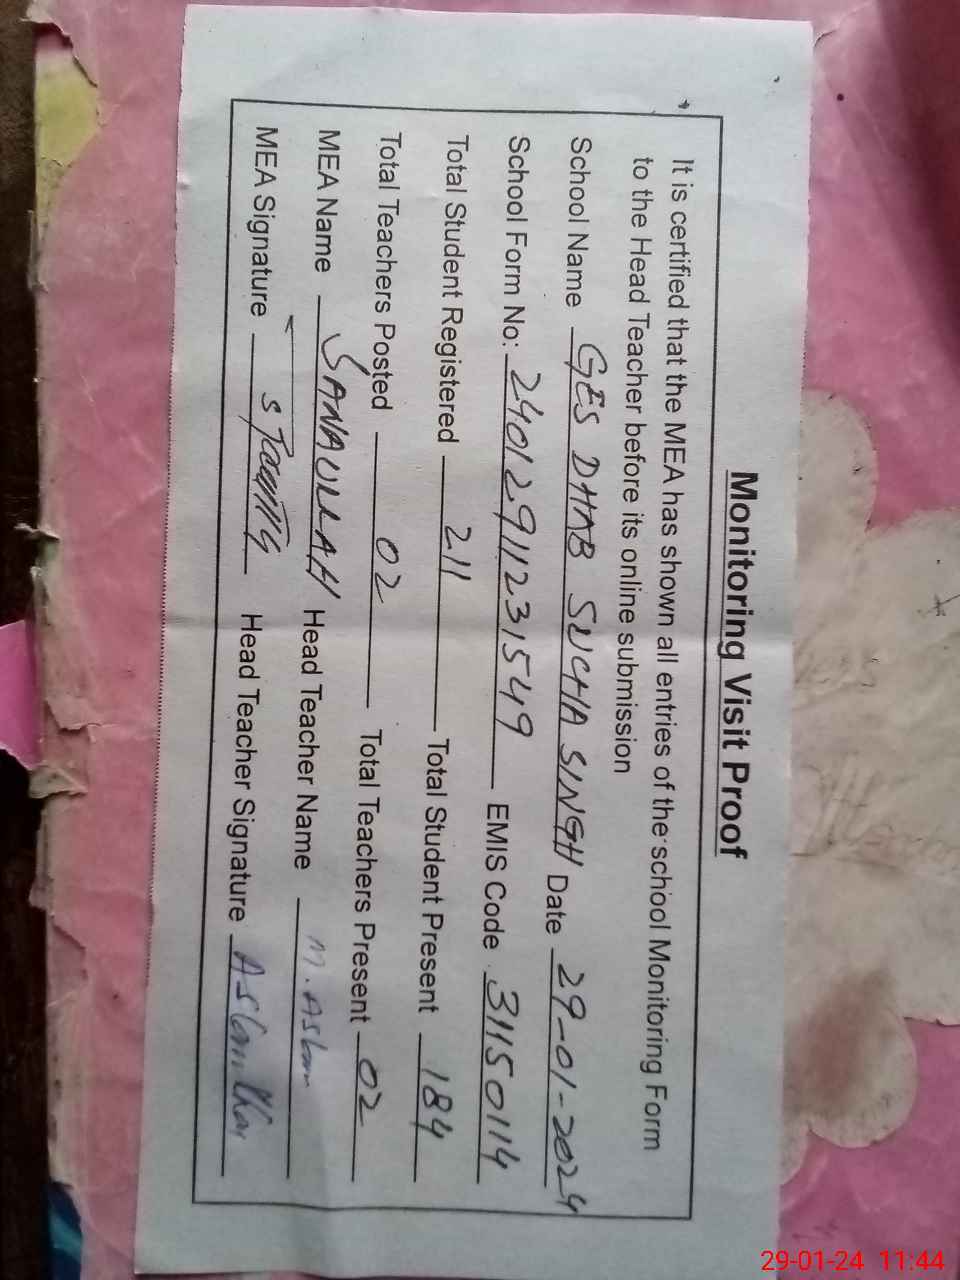 Monitoring Visit Proof
It is certified that the MEA has shown all entries of the school Monitoring Form
to the Head Teacher before its online submission
School Name GES DHAB SUCHA SINGH Date 29-01-2024
School Form No: 2401291123 1549 EMIS Code 31150114
Total Student Registered 211 Total Student Present 184
Total Teachers Posted 02 Total Teachers Present 02
MEA Name SANAULLAH Head Teacher Name M. Aslam
MEA Signature Head Teacher Signature Aslam Khan
29-01-24 11:44